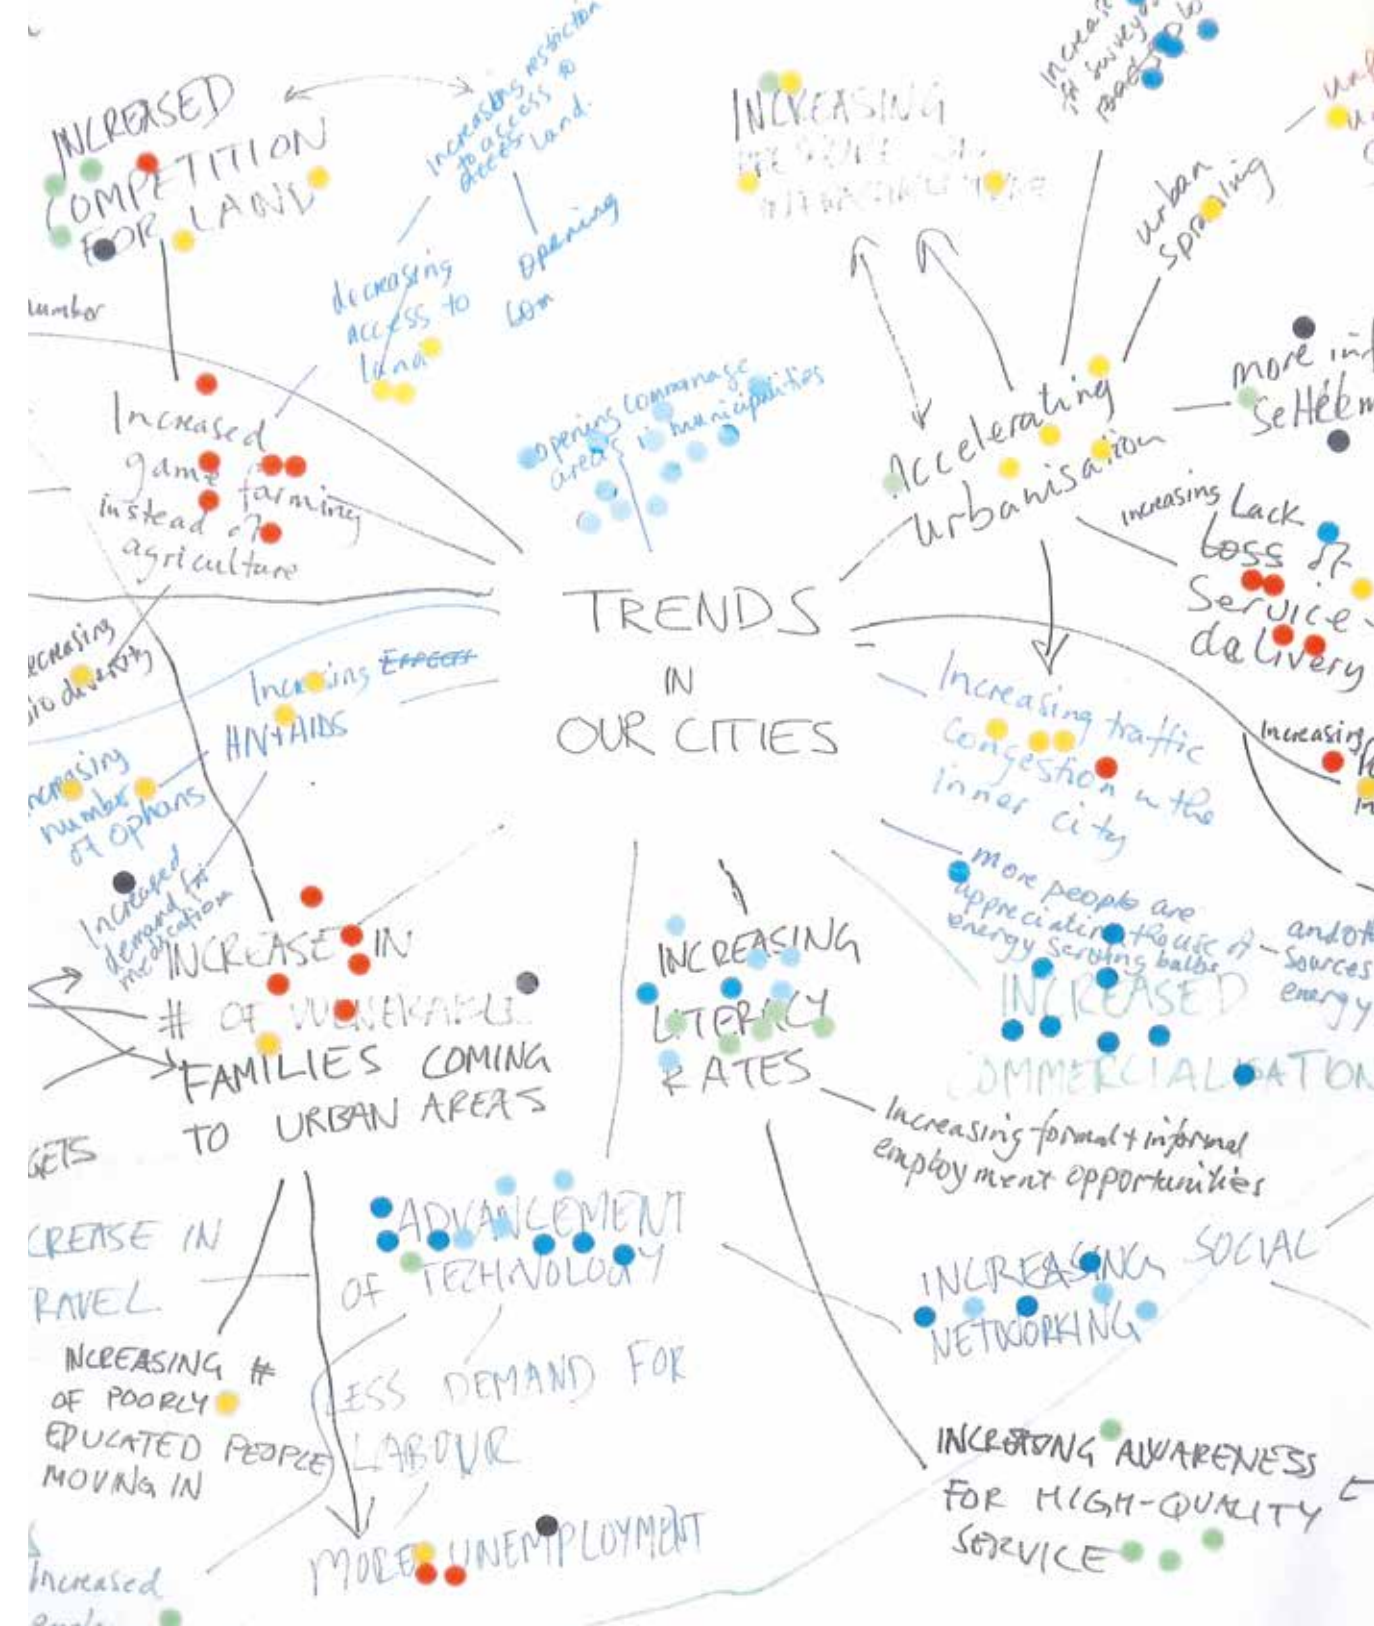 INCREASED
COMPETITION
FOR LAND
increasing restriction
to access to
access land.
decreasing
access to
land
opening
com
number
INCREASING
PRESSURE ON
INFRASTRUCTURE
increase
in surveys
urban
sprawling
opening commonage
areas in municipalities
Accelerating
urbanisation
more inf
settlem
increasing Lack
Loss of
Service-
delivery
Increased
game farming
instead of
agriculture
TRENDS
IN
OUR CITIES
ecreasing
io diversity
Increasing EFFECTS
HIV+AIDS
ncreasing
number
of ophans
Increased
demand for
medication
Increasing traffic
congestion in the
inner city
increasing
more people are
appreciating the use of
energy serving bulbs
and ot
sources
energy
INCREASE IN
# OF VULNERABLE
FAMILIES COMING
TO URBAN AREAS
INCREASING
LITERACY
RATES
INCREASED
COMMERCIALISATION
Increasing formal + informal
employment opportunities
GETS
CREASE IN
RAVEL
ADVANCEMENT
OF TECHNOLOGY
INCREASING SOCIAL
NETWORKING
NCREASING #
OF POORLY
EDUCATED PEOPLE
MOVING IN
LESS DEMAND FOR
LABOUR
MORE UNEMPLOYMENT
INCREASING AWARENESS
FOR HIGH-QUALITY
SERVICE
Increased